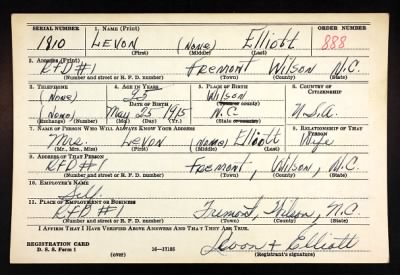 SERIAL NUMBER 1. NAME (Print) ORDER NUMBER
1910 LEVON (None) Elliott 888
(First) (Middle) (Last)
2. ADDRESS (Print)
RFD #1 Fremont Wilson N.C.
(Number and street or R. F. D. number) (Town) (County) (State)
3. TELEPHONE 4. AGE IN YEARS 5. PLACE OF BIRTH 6. COUNTRY OF CITIZENSHIP
(None) 25 Wilson
(Town or county)
DATE OF BIRTH
(None) May 25 1915 N.C. U.S.A.
(Exchange) (Number) (Mo.) (Day) (Yr.) (State or country)
7. NAME OF PERSON WHO WILL ALWAYS KNOW YOUR ADDRESS 8. RELATIONSHIP OF THAT PERSON
Mrs. Levon (None) Elliott Wife
(Mr., Mrs., Miss) (First) (Middle) (Last)
9. ADDRESS OF THAT PERSON
RFD #1 Fremont, Wilson, N.C.
(Number and street or R. F. D. number) (Town) (County) (State)
10. EMPLOYER'S NAME
Self
11. PLACE OF EMPLOYMENT OR BUSINESS
RFD #1 Fremont, Wilson, N.C.
(Number and street or R. F. D. number) (Town) (County) (State)
I AFFIRM THAT I HAVE VERIFIED ABOVE ANSWERS AND THAT THEY ARE TRUE.
REGISTRATION CARD
D. S. S. Form 1 (over) 16—17105 Elliott
(Registrant's signature)